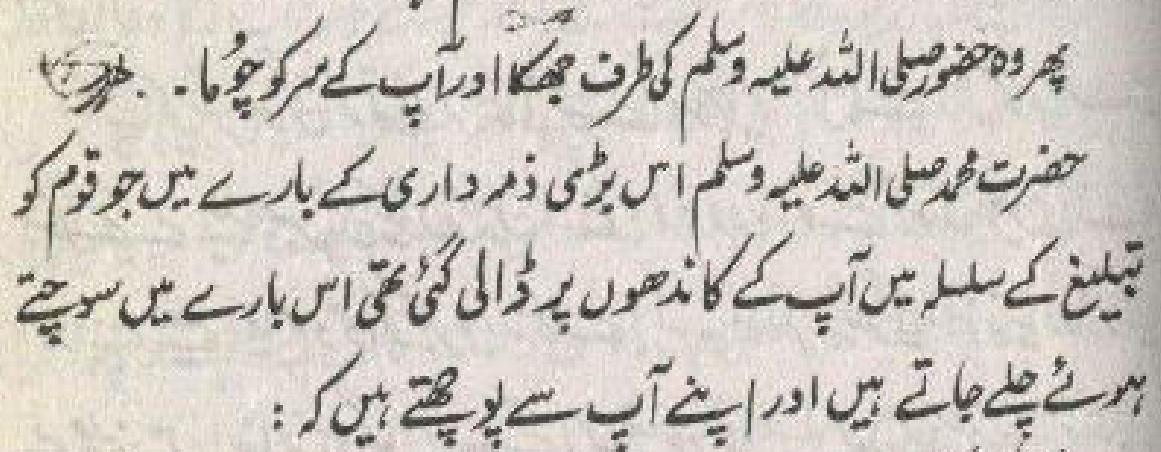 پھر وہ حضور صلی اللہ علیہ وسلم کی طرف جھکا اور آپ کے سر کو چُوما۔
حضرت محمد صلی اللہ علیہ وسلم اس بڑی ذمہ داری کے بارے میں جو قوم کو
تبلیغ کے سلسلہ میں آپ کے کاندھوں پر ڈالی گئی تھی اس بارے میں سوچتے
ہوئے چلے جاتے ہیں اور اپنے آپ سے پوچھتے ہیں کہ :